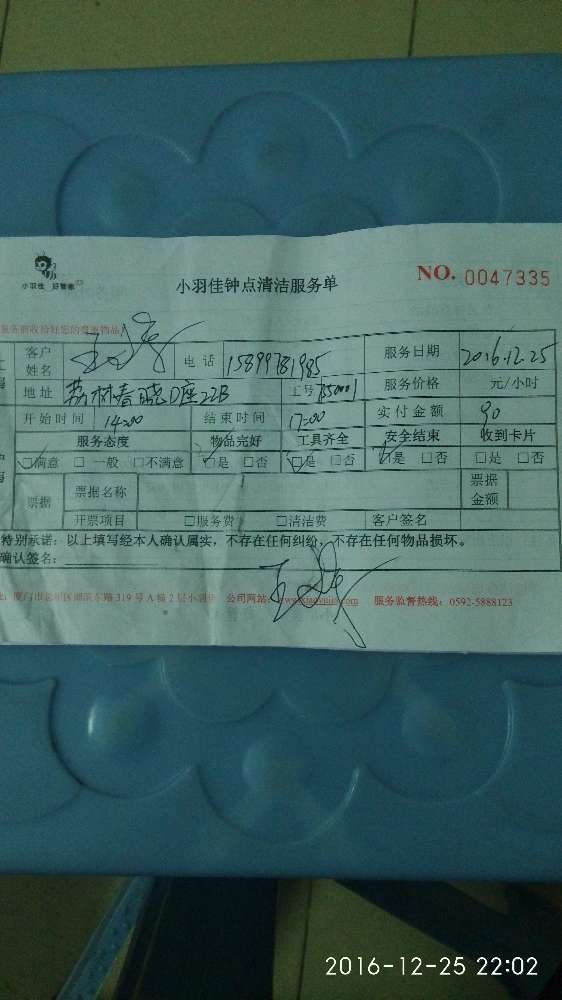 小羽佳 好管家
小羽佳钟点清洁服务单
NO. 0047335
服务前收拾好您的贵重物品
客户姓名 电话 15899781985 服务日期 2016.12.25
地址 荔树春晓D座22B 工号 服务价格 元/小时
开始时间 14:00 结束时间 17:00 实付金额 90
服务态度 物品完好 工具齐全 安全结束 收到卡片
☑满意 □一般 □不满意 ☑是 □否 ☑是 □否 ☑是 □否 □是 □否
票据 票据名称 票据金额
开票项目 □服务费 □清洁费 客户签名
特别承诺：以上填写经本人确认属实，不存在任何纠纷，不存在任何物品损坏。
确认签名：
厦门市思明区 319号A幢2层小羽佳 公司网站： 服务监督热线：0592-5888123
2016-12-25 22:02